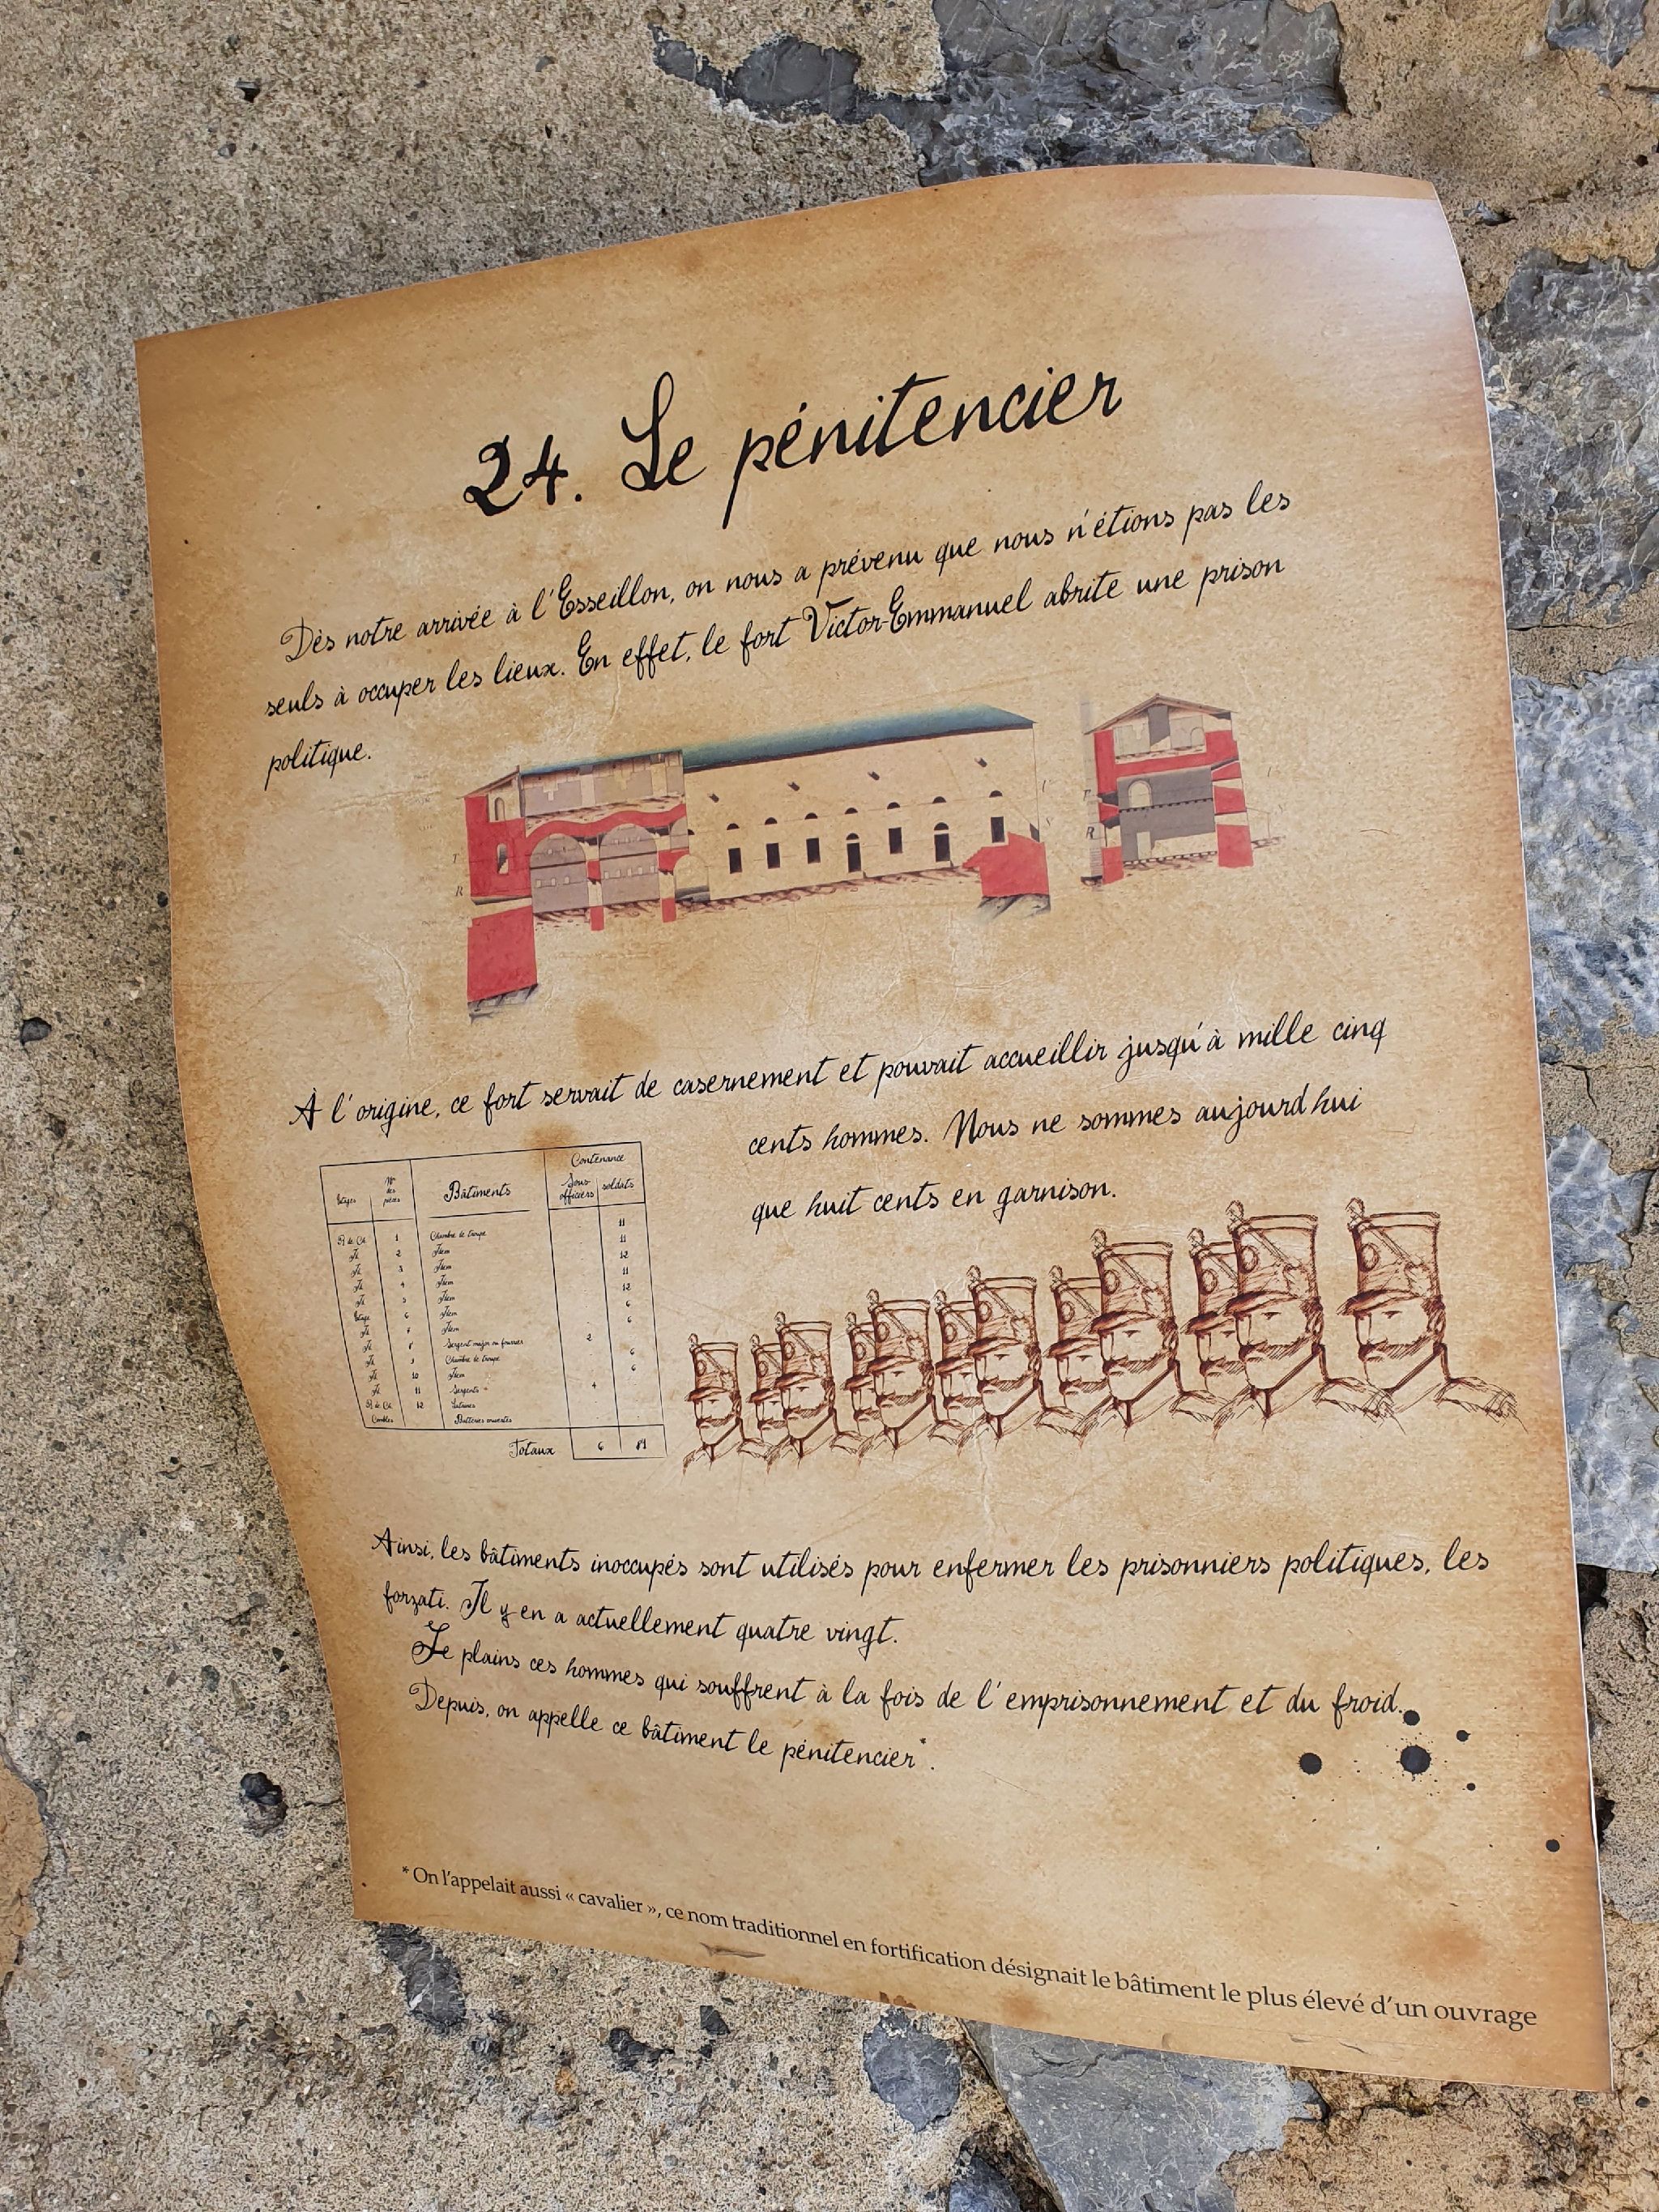 24. Le pénitencier
Dès notre arrivée à l'Esseillon, on nous a prévenu que nous n'étions pas les
seuls à occuper les lieux. En effet, le fort Victor-Emmanuel abrite une prison
politique.
T
R
R
À l'origine, ce fort servait de casernement et pouvait accueillir jusqu'à mille cinq
cents hommes. Nous ne sommes aujourd'hui
que huit cents en garnison.
Contenance
Etages N° des pièces Bâtiments Sous officiers soldats
R de Ch 1 Chambre de troupe 11
Id 2 Item 11
Id 3 Item 12
Id 4 Item 11
Id 5 Item 12
Etage 6 Item 6
Id 7 Item 6
Id 8 Sergent major ou fourrier 2
Id 9 Chambre de troupe 6
Id 10 Item 6
Id 11 Sergents 4
R de Ch 12 Latrines
Combles Batteries
Totaux 6 81
Ainsi, les bâtiments inoccupés sont utilisés pour enfermer les prisonniers politiques, les
forzati. Il y en a actuellement quatre vingt.
Je plains ces hommes qui souffrent à la fois de l'emprisonnement et du froid.
Depuis, on appelle ce bâtiment le pénitencier*.
* On l'appelait aussi « cavalier », ce nom traditionnel en fortification désignait le bâtiment le plus élevé d'un ouvrage